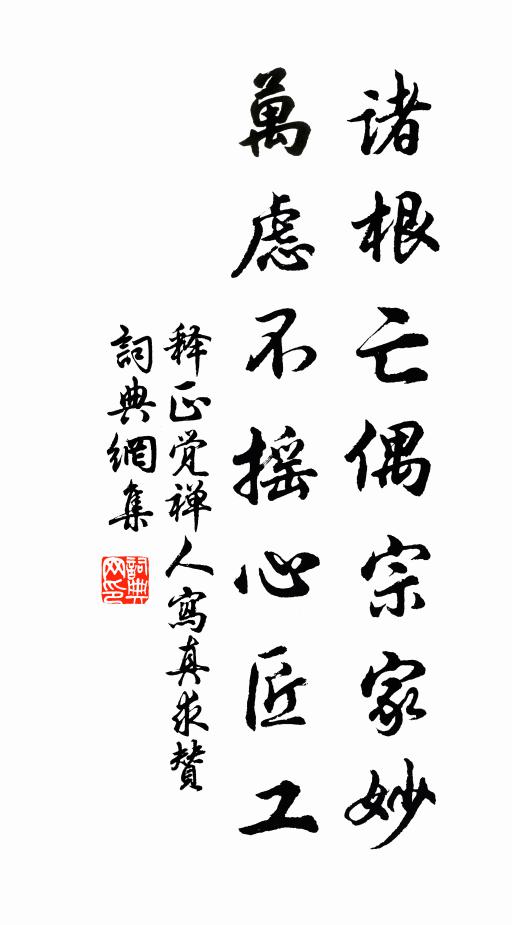 諸根亡偶宗家妙
萬慮不摇心匠工
释正覺禅人寫真求贊
詞典網集
詞典网印